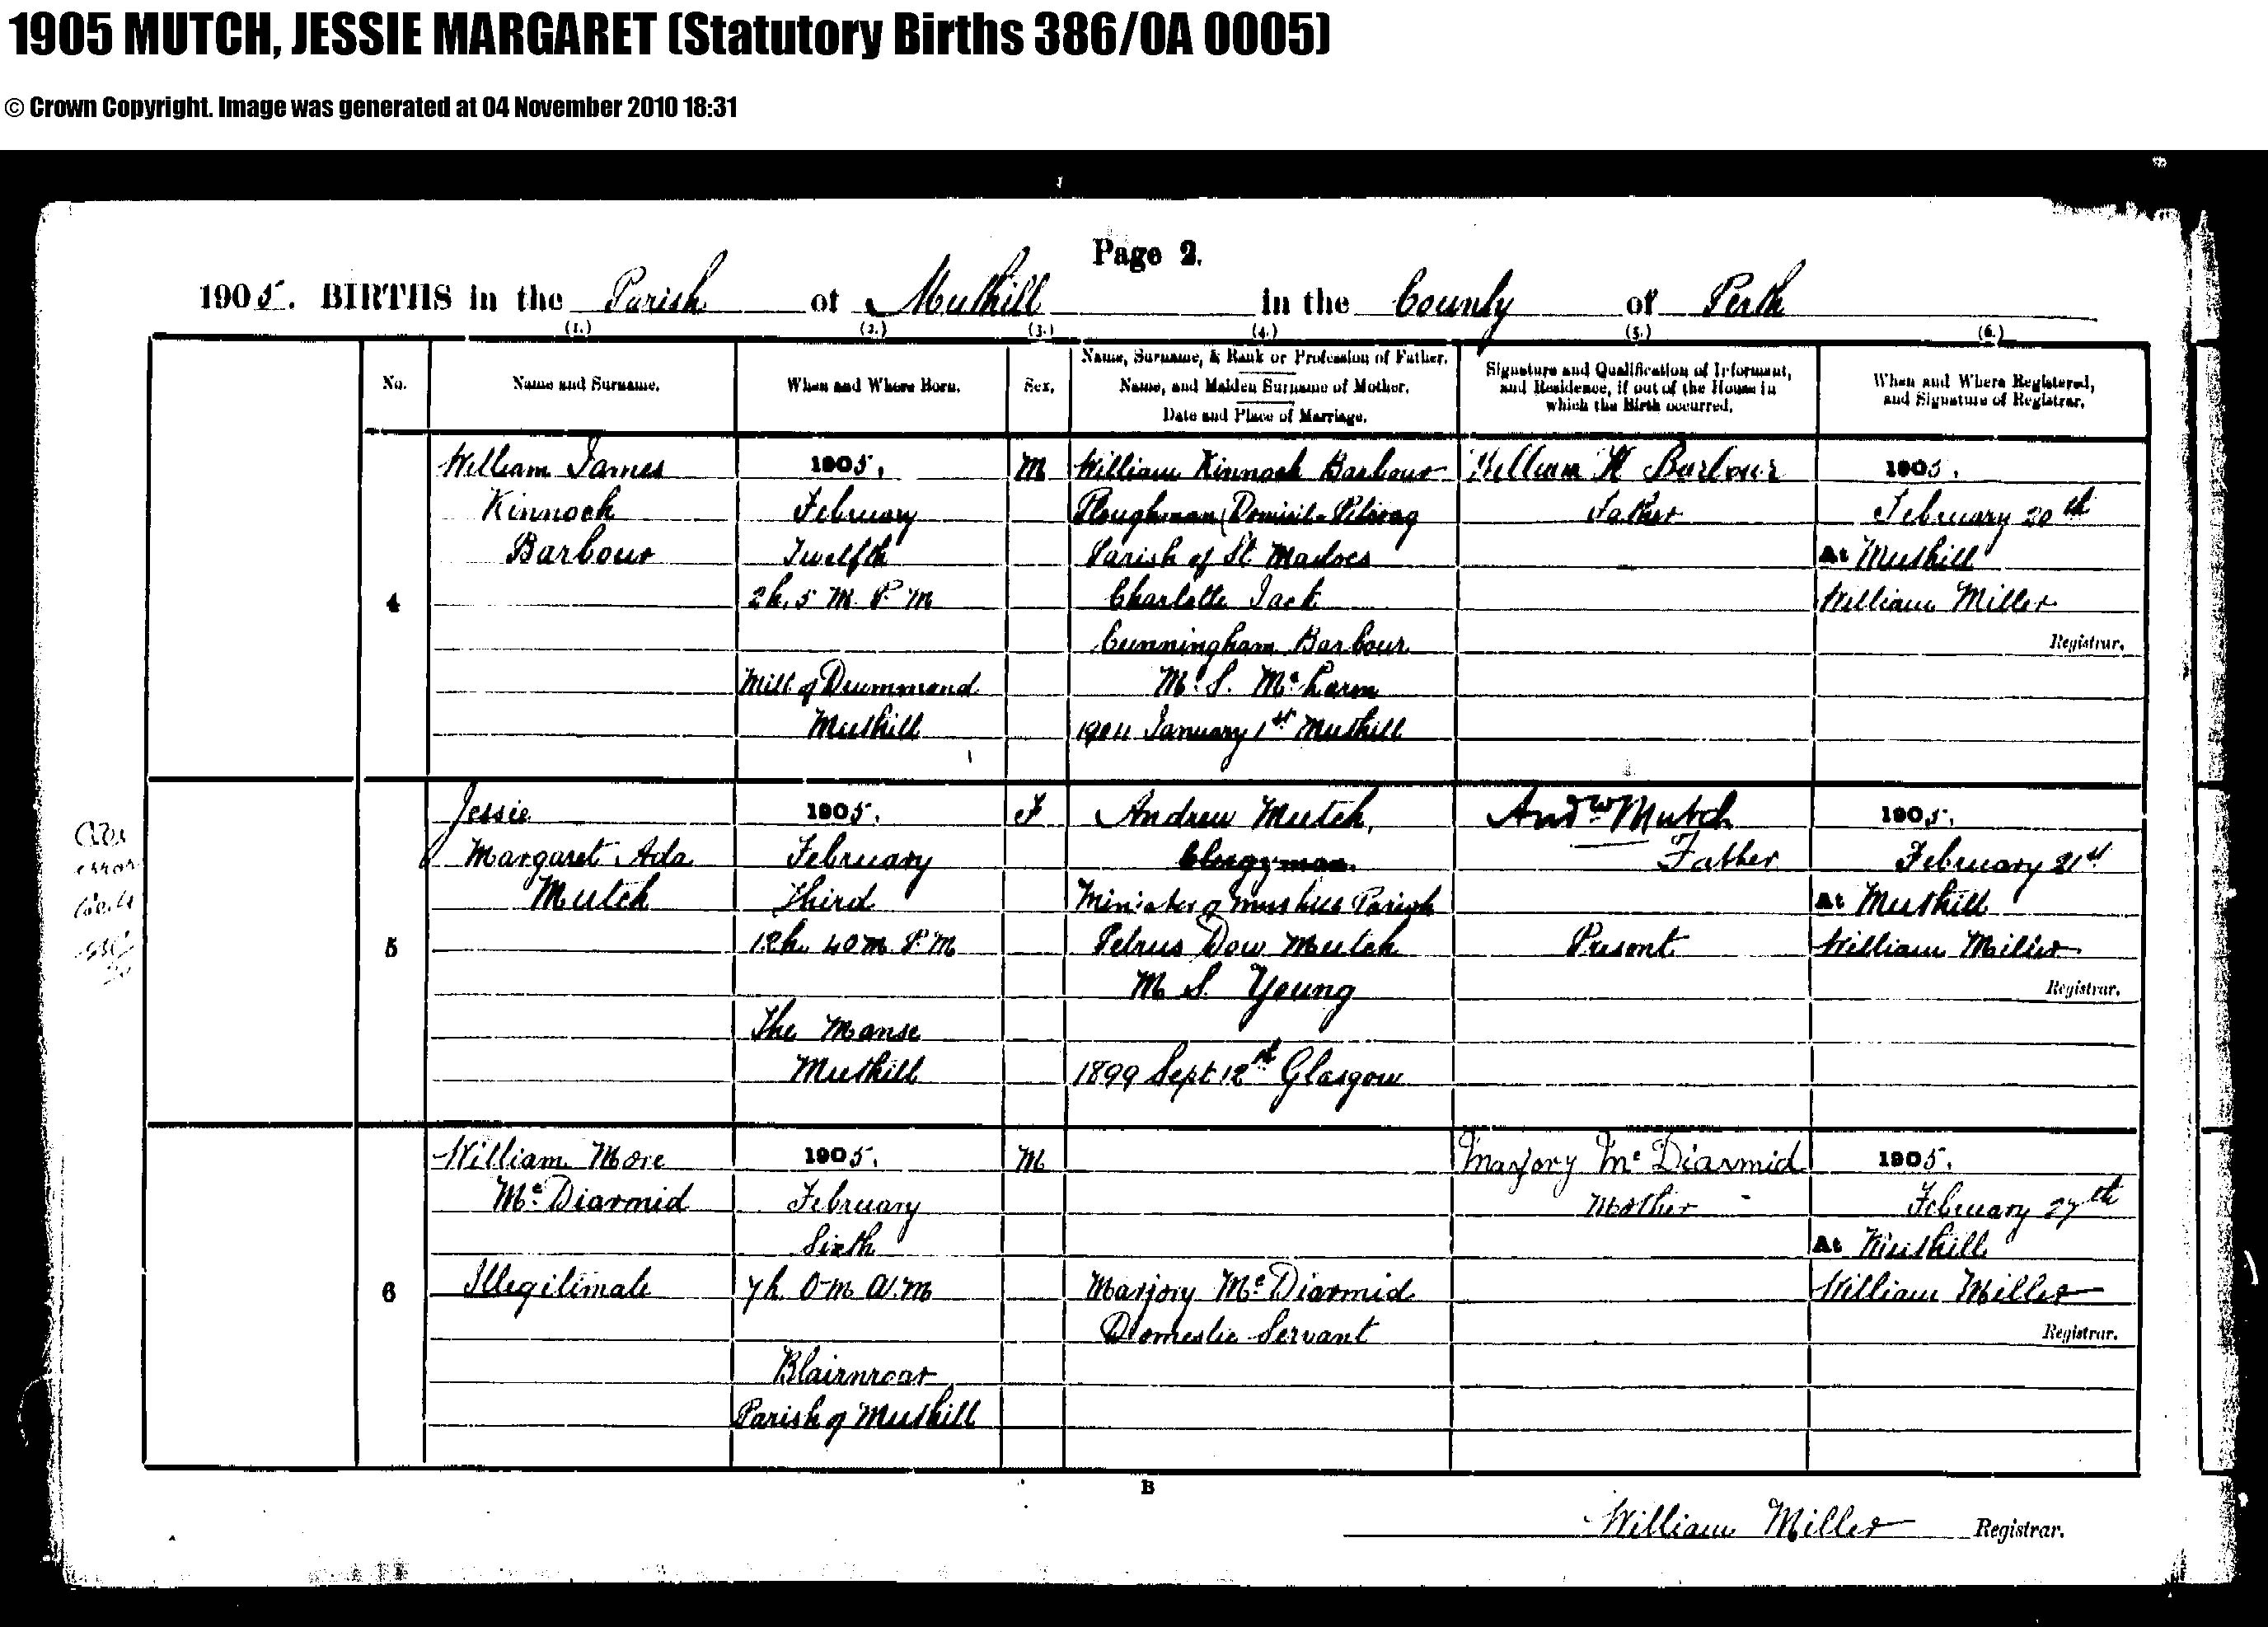 1905 MUTCH, JESSIE MARGARET (Statutory Births 386/0A 0005)
© Crown Copyright. Image was generated at 04 November 2010 18:31
Page 2.
1905. BIRTHS in the Parish of Muthill in the County of Perth
(1.) (2.) (3.) (4.) (5.) (6.)
No.
Name and Surname.
When and Where Born.
Sex.
Name, Surname, & Rank or Profession of Father.
Name, and Maiden Surname of Mother.
Date and Place of Marriage.
Signature and Qualification of Informant,
and Residence, if out of the House in
which the Birth occurred.
When and Where Registered,
and Signature of Registrar.
4
William James
Kinnoch
Barbour
1905.
February
Twelfth
2h. 5 M. P. M
Mill of Drummond
Muthill
M
William Kinnoch Barbour
Ploughman (Domicil
Parish of St. Madoes
Charlotte Jack
Cunningham Barbour
M. S. Mc Larm
1904 January 1st Muthill
William K Barbour
Father
1905.
February 20th
At Muthill
William Miller
Registrar.
error
5
Jessie
Margaret Ada
Mutch
1905.
February
Third
12h. 40 m. P. M
The Manse
Muthill
F
Andrew Mutch,
Clergyman.
Minister of Muthill Parish
Petrus Dow Mutch
M S. Young
1899 Sept 12th Glasgow
Andw. Mutch
Father
Present
1905.
February 21st
At Muthill
William Miller
Registrar.
6
William More
Mc Diarmid
Illegitimate
1905.
February
Sixth
7h. 0 m A. M
Blairnroar
Parish of Muthill
M
Marjory Mc Diarmid
Domestic Servant
Marjory Mc Diarmid
Mother
1905.
February 27th
At Muthill
William Miller
Registrar.
B
William Miller Registrar.